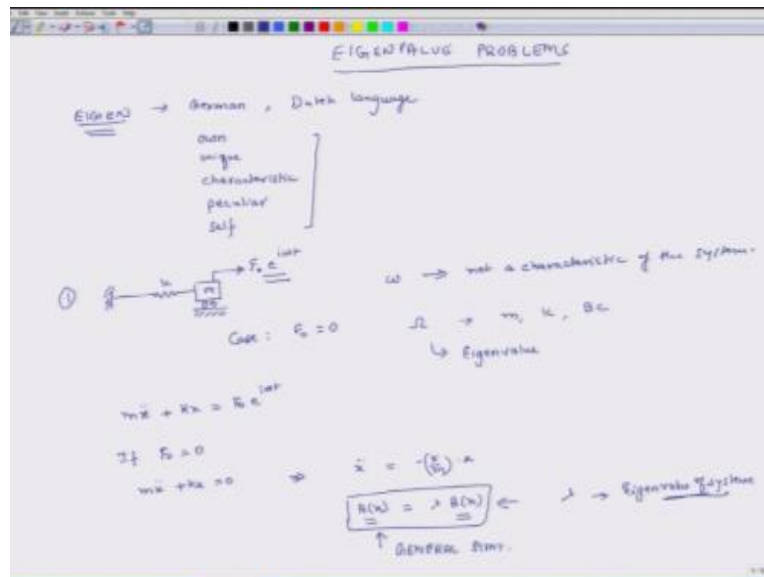 EIGENVALUE PROBLEMS
EIGEN → German , Dutch language
own
unique
characteristic
peculiar
self
① k m F₀ e^{iωt}
ω → not a characteristic of the system.
Case : F₀ = 0 Ω → m, k, BC
↳ Eigenvalue
mẍ + kx = F₀ e^{iωt}
If F₀ = 0
mẍ + kx = 0 ⇒ ẍ = -(k/m) · x
A(x) = λ B(x) ← λ → Eigenvalue of system
↑ GENERAL STMT.